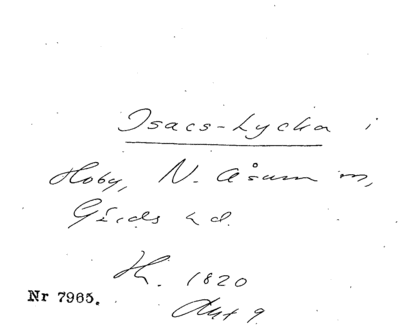 Isacs-Lycka i
Hoby, N. Åsum sn,
Gärds hd.
Hh. 1820
Akt 9.
Nr 7965.